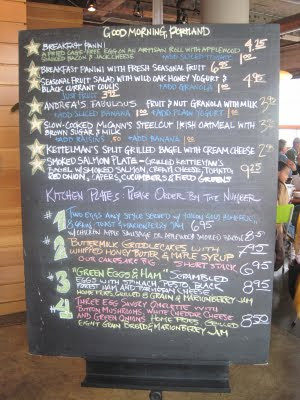 Good Morning, Portland
Breakfast Panini
A Fried Cage Free Egg on an Artisan Roll with Applewood
Smoked Bacon & Jack Cheese
4.25
Breakfast Panini with Fresh Seasonal Fruit 6.25
Seasonal Fruit Salad with Wild Oak Honey Yogurt &
Black Currant Coulis
4.95
Just Fruit 3.95 *Add Granola 1.00
Andrea's Fabulous Fruit & Nut Granola with Milk
*Add Sliced Banana 1.00 *Add Plain Yogurt 1.00
Slow-Cooked McCann's Steelcut Irish Oatmeal with
Brown Sugar & Milk
*Add Raisins .50 *Add Banana 1.00
Kettelman's Split Grilled Bagel with Cream Cheese
Smoked Salmon Plate - Grilled Kettleman's
Bagel w/Smoked Salmon, Cream Cheese, Tomato,
Red Onion, Capers, Cucumbers & Field Greens
9.25
Kitchen Plates: Please Order By The Number
#1 Two Eggs Any Style Served w/ Yukon Gold Homefries
8 Grain Toast & Marionberry Jam 6.95
w/ Chicken Apple Sausage or Applewood Smoked Bacon 8.50
#2 Buttermilk Griddlecakes with
Whipped Honey Butter & Maple Syrup
7.95
Our Cakes are Big Short Stack 6.95
#3 "Green Eggs & Ham" Scrambled
Eggs with Spinach Pesto, Black
Forest Ham and Parmesan Cheese
8.95
Home Fries, Grilled 8 Grain & Marionberry Jam
#4 Three Egg Savory Omelette with
Button Mushrooms, White Cheddar Cheese
and Green Onions Home Fries Grilled
Eight Grain Bread & Marionberry Jam
8.50